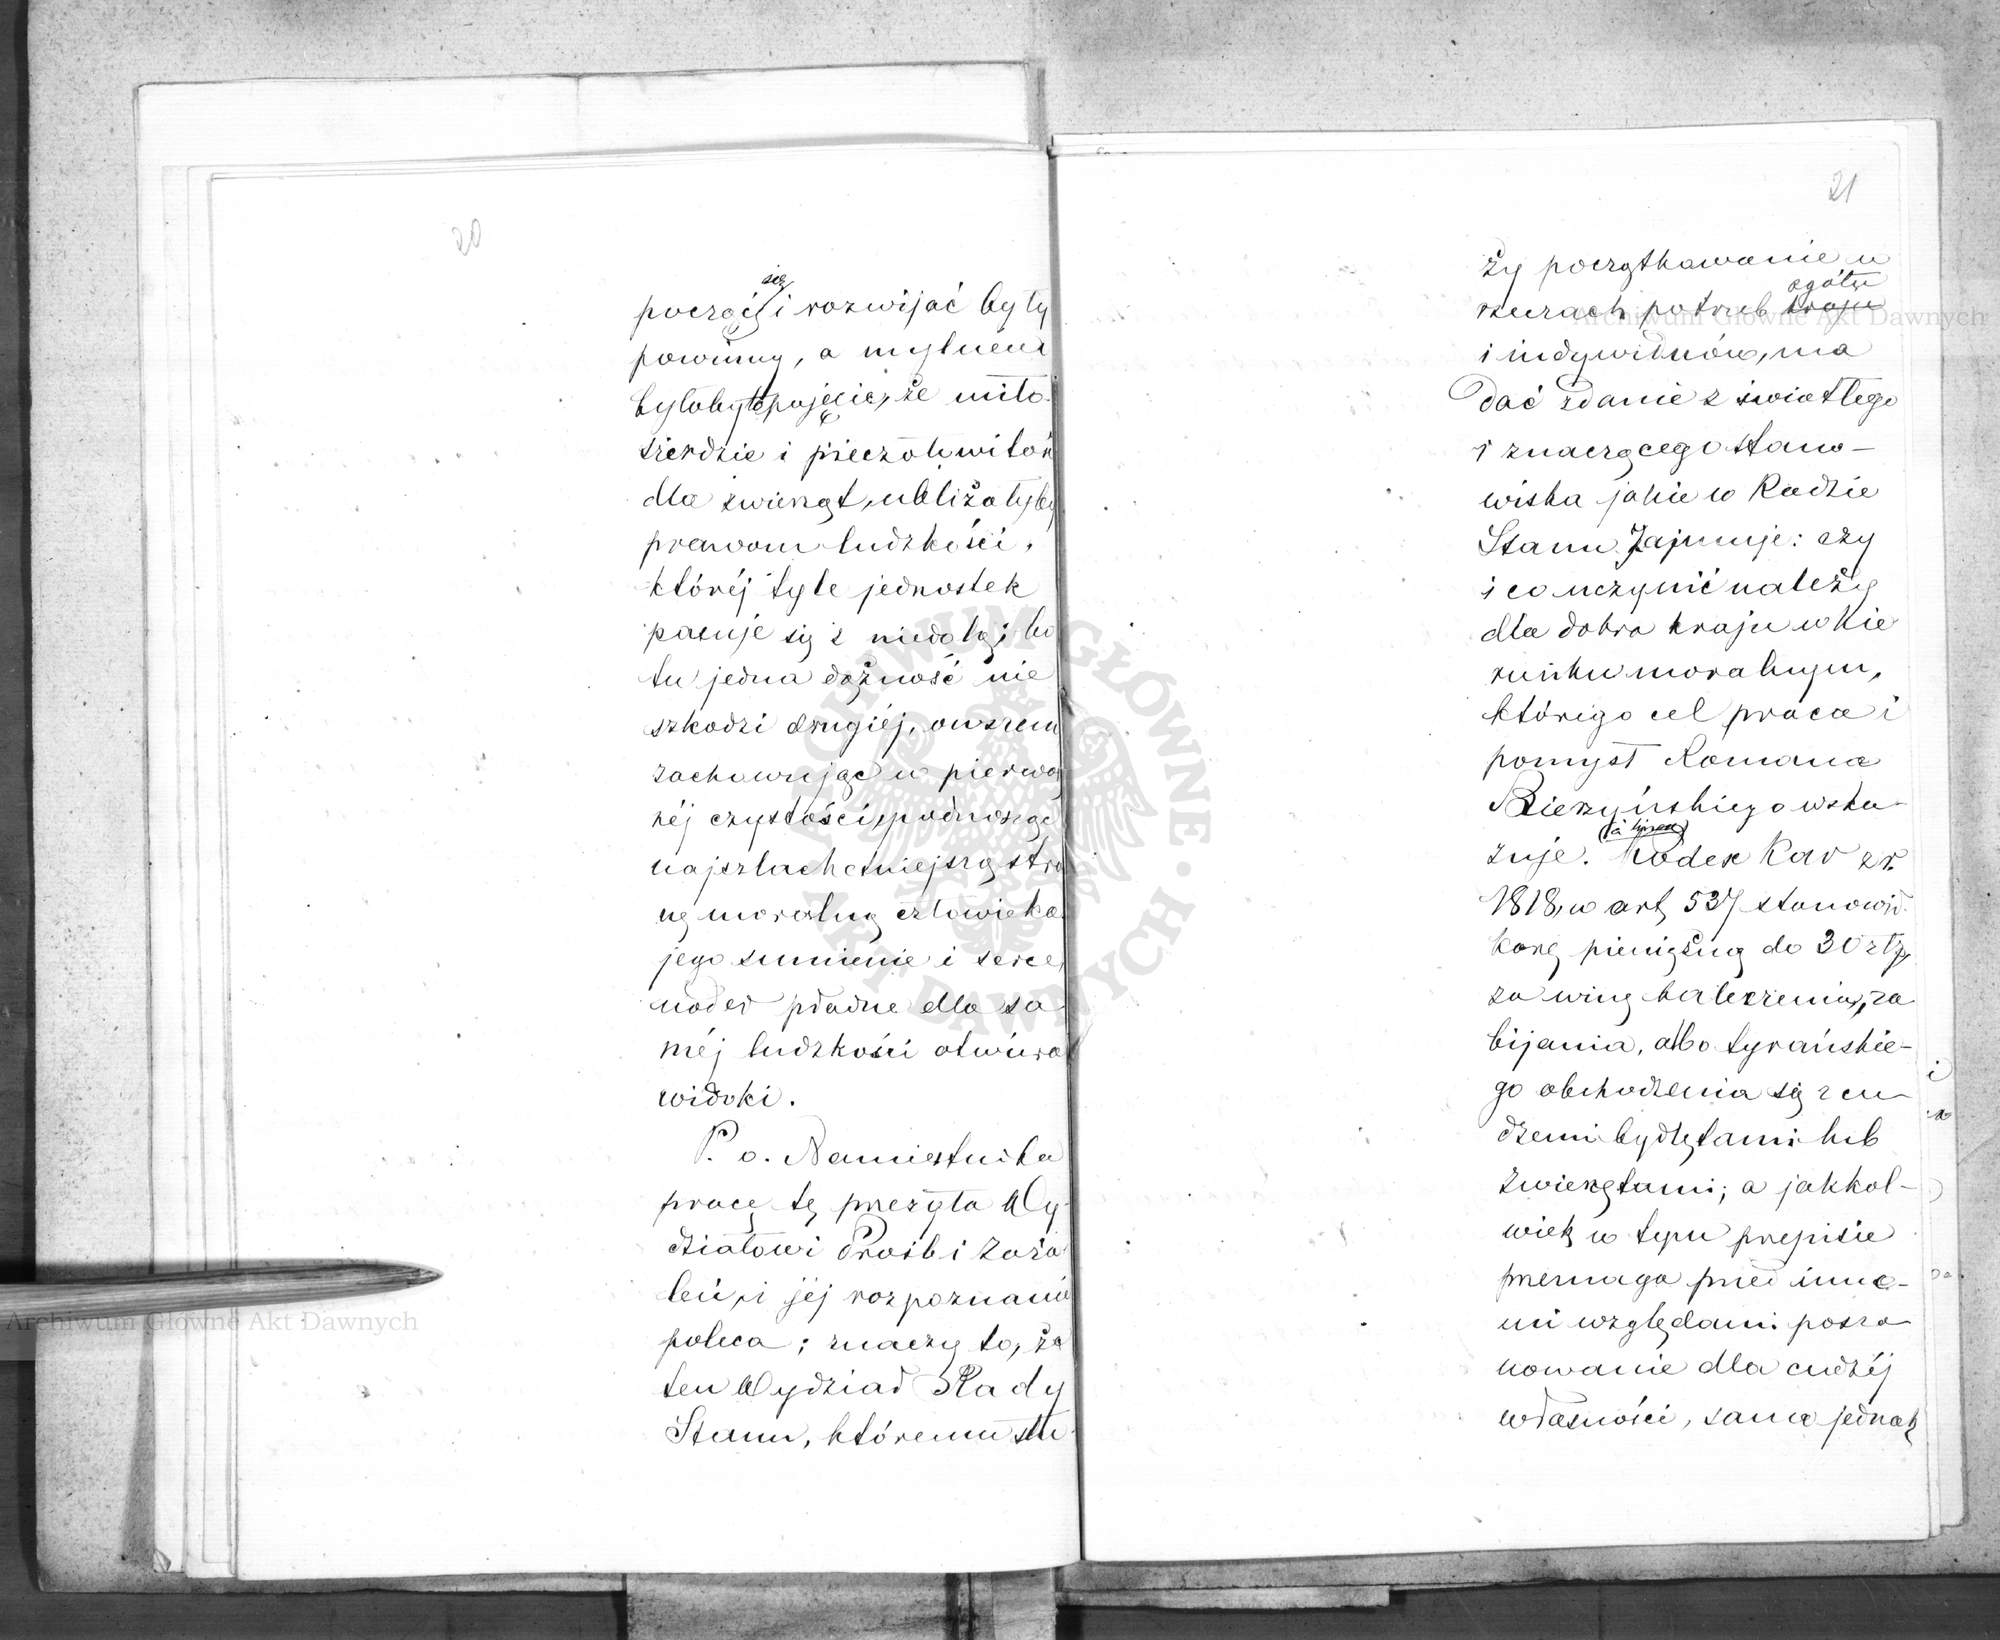 20
się
począć i rozwijać by ty
powinny, a mylnem
byłoby to pojęcie, że miło-
sierdzie i pieczołowitość
dla zwierząt, ubliżałyby
prawom ludzkości,
któréj tyle jednostek
pasuje się z niedolą; bo
tu jedna dążność nie
szkodzi drugiéj, owszem
zachowując w pierwot
néj czystości, podnosząc
najszlachetniejszą stro
nę moralną człowieka
jego sumienie i serce,
nader płodne dla sa
méj ludzkości otwiera
widoki.
P. o. Namiestnika
pracę tę przesyła Wy-
działowi Próśb i Zaża
leń, i jéj rozpoznanie
poleca; znaczy to, że
ten Wydział Rady
Stanu, któremu słu-
21
ży początkowanie w
rzeczach potrzeb kraju
ogółu
i indywiduów, ma
dać zdanie z światłego
i znaczącego stano-
wiska jakie w Radzie
Stanu Zajmuje: czy
i co uczynić należy
dla dobra kraju w kie
runku moralnym,
którego cel praca i
pomysł Romana
Bierzyńskiego wska-
zuje. Kodex Kar z r.
(à linea)
1818, w art, 537 stanowił
karę pieniężną do 30 złp,
za winę kaleczenia, za
bijania, albo tyrańskie-
go obchodzenia się z cu-
dzemi bydlętami lub
zwierzętami; a jakkol-
wiek w tym przepisie
przemaga przed inne-
mi względami posza
nowanie dla cudzéj
własności, sama jednak
Archiwum Główne Akt Dawnych
Archiwum Główne Akt Dawnych
ARCHIWUM GŁÓWNE AKT DAWNYCH